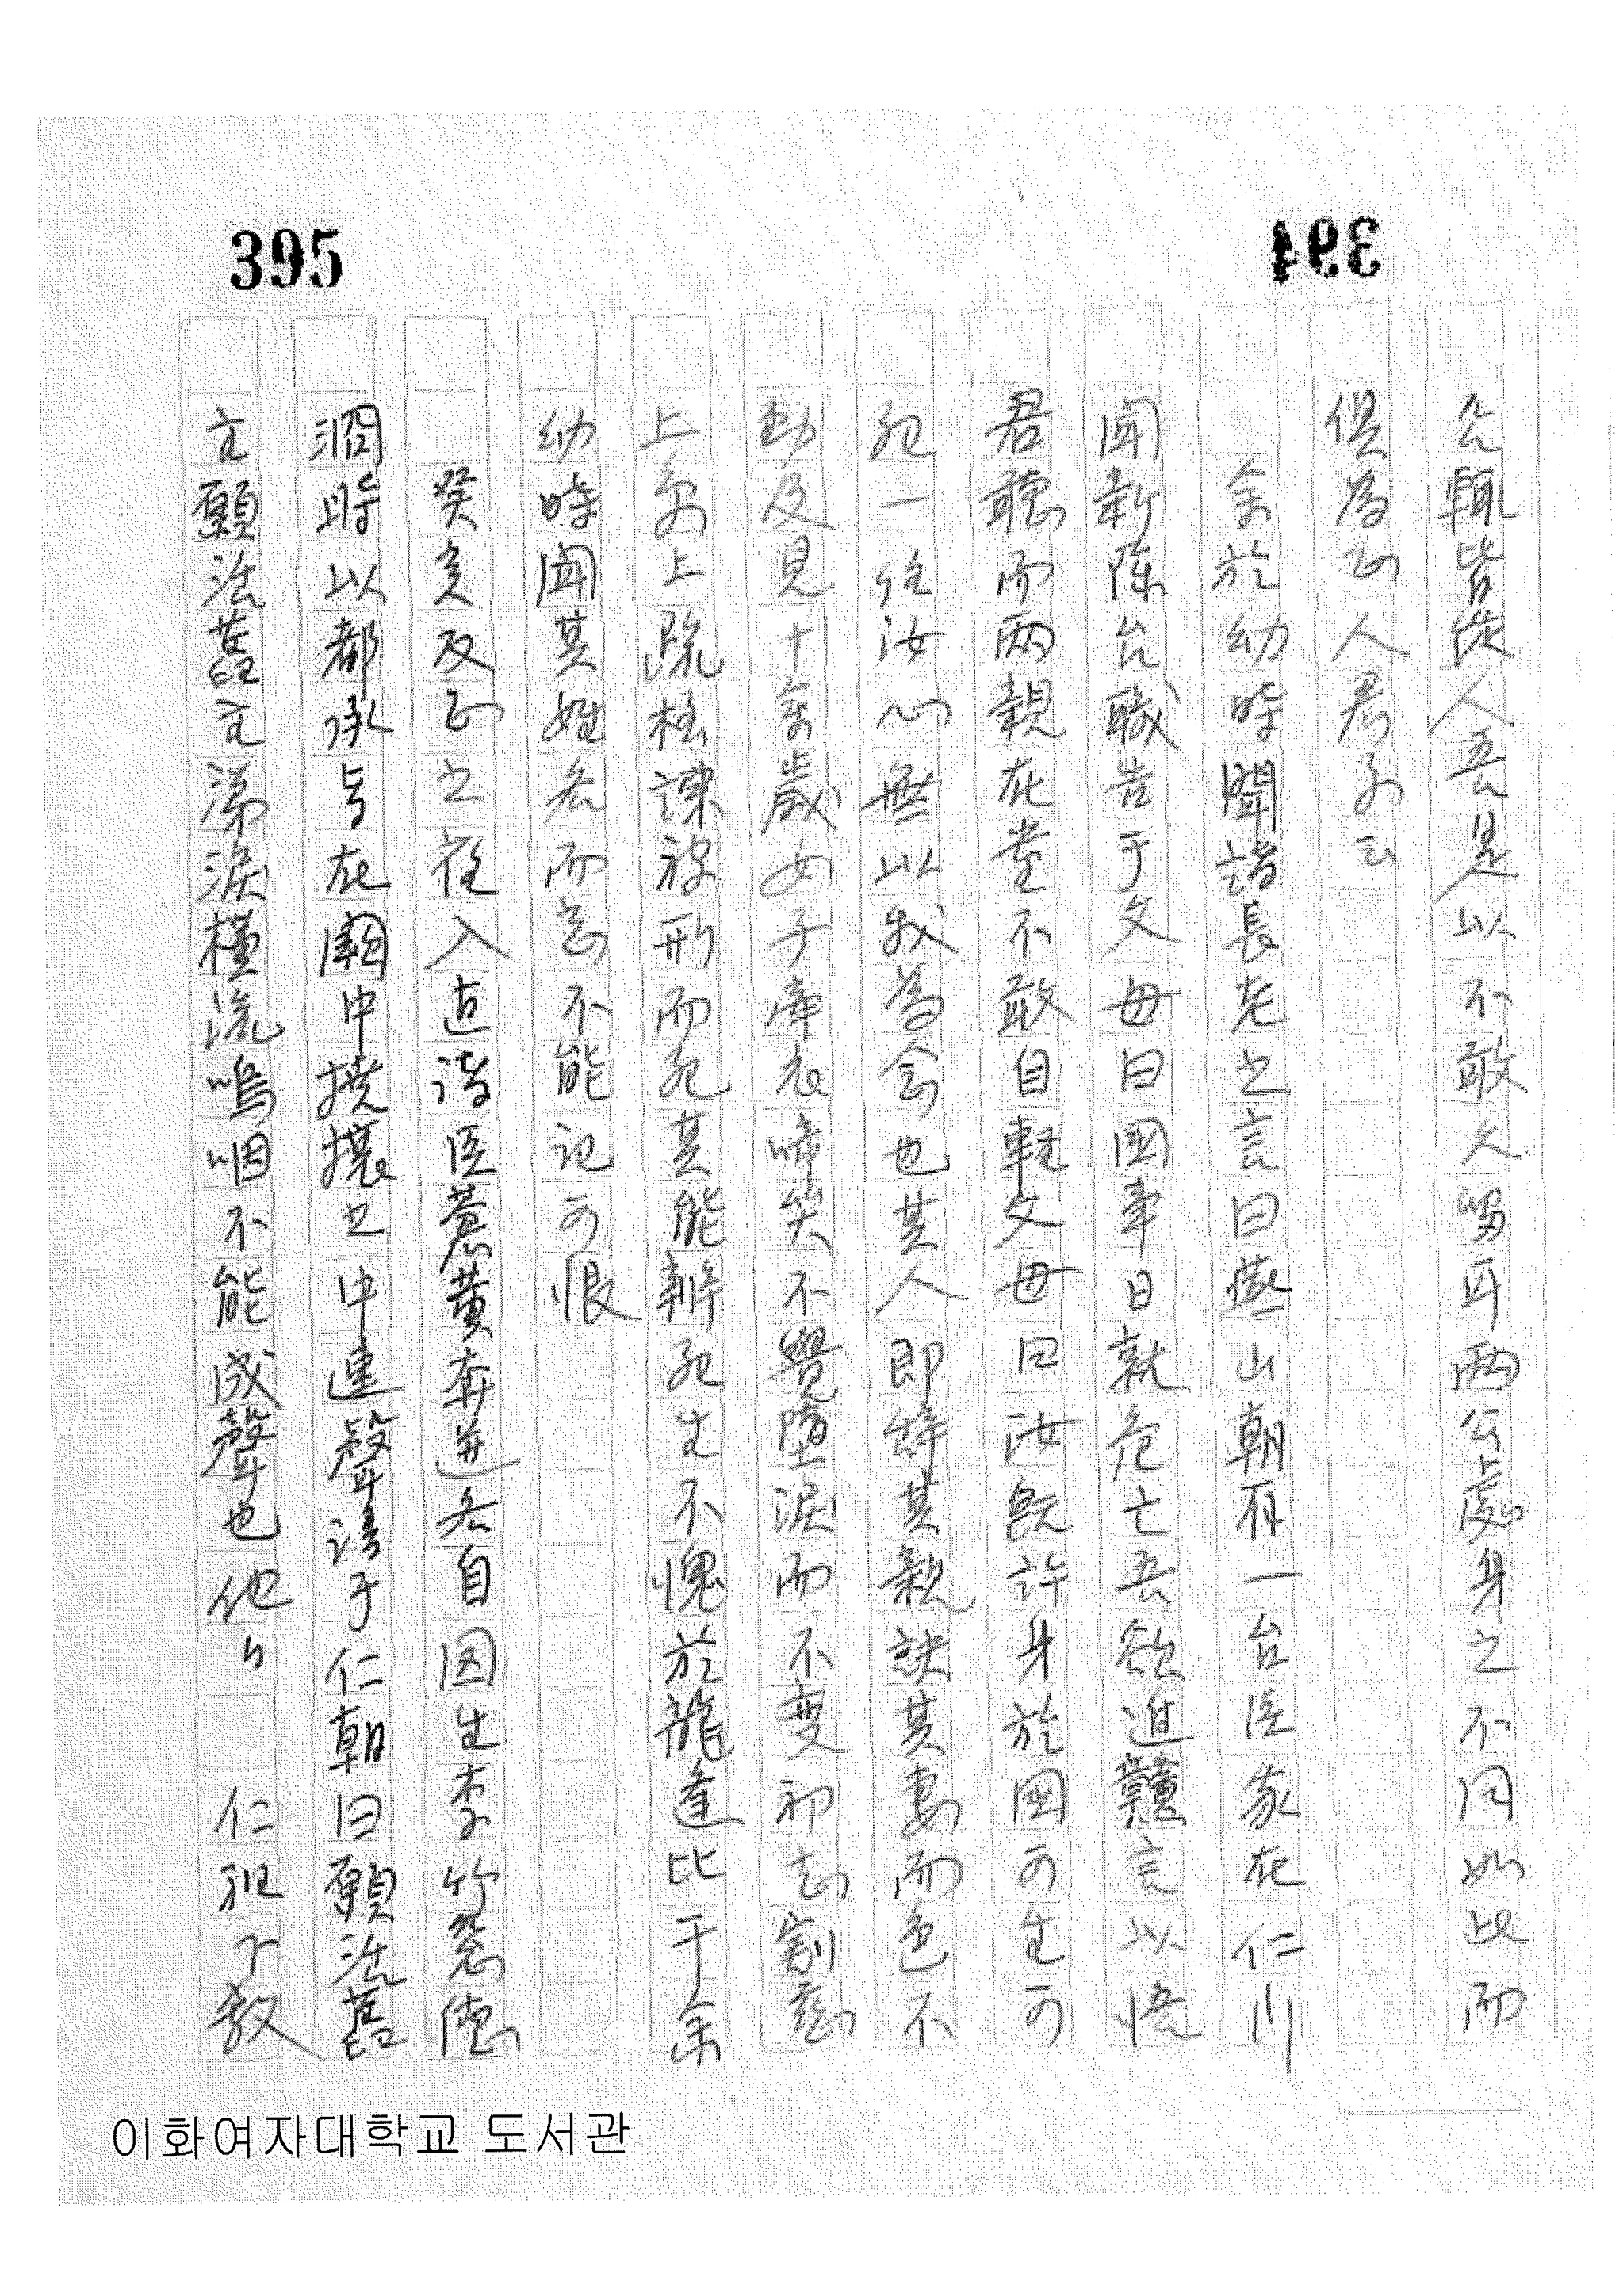 395
394
允輒皆從人吾是以不敢久留耳兩公處身之不同如此而
俱爲正人君子云
余於幼時聞諸長老之言曰燕山朝有一台臣家在仁川
聞新除台職告于父母曰國事日就危亡吾欲進讜言以悟
君聽而兩親在堂不敢自輕父母曰汝旣許身於國可生可
死一任汝心無以我爲念也其人即辭其親訣其妻而色不
動及見十餘歲女子牽衣啼哭不覺墮淚而不變初志割
上京上疏極諫被刑而死其能辦死生不愧於龍逄比干余
幼時聞其姓名而忘不能記可恨
癸亥反正之後入直諸臣蒼黃奔迸各自圖生李竹窓德
泂時以都承旨在闕中擾攘之中連聲請于仁朝曰願活舊
主願活舊主涕淚橫流嗚咽不能成聲也他日 仁祖下教
이화여자대학교 도서관